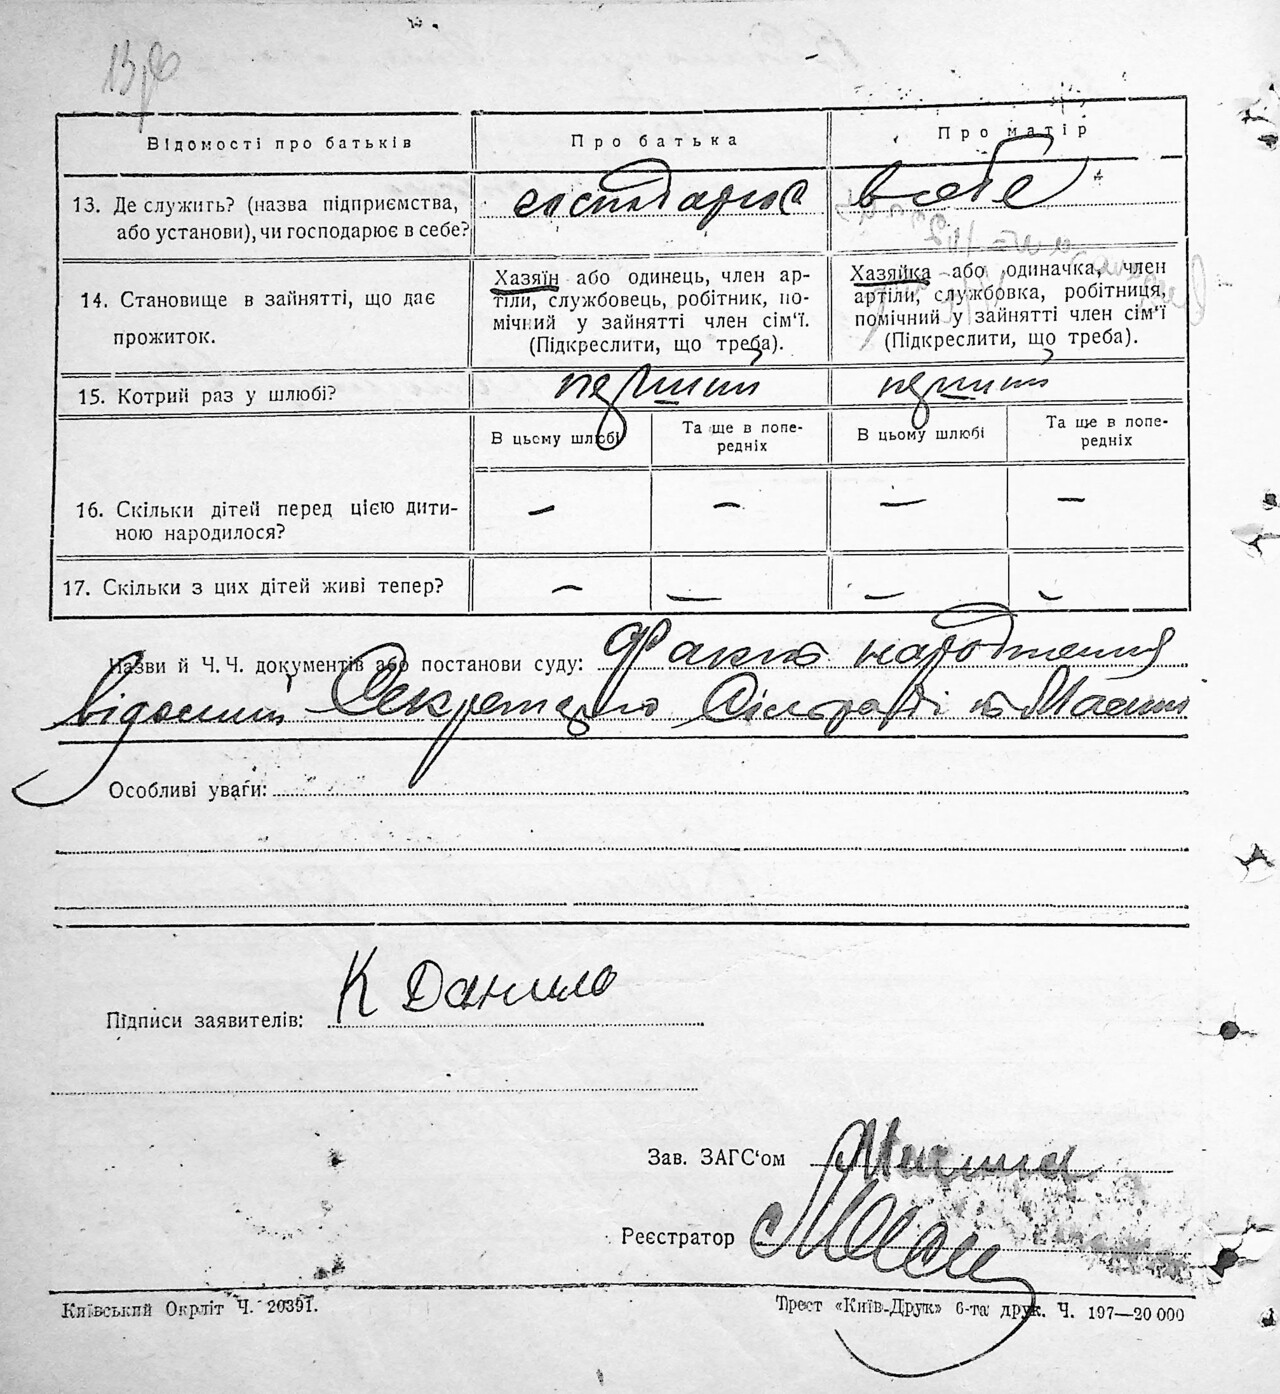 Відомості про батьків
Про батька
Про матір
13. Де служить? (назва підприємства,
або установи), чи господарює в себе?
господарює в себе
14. Становище в зайнятті, що дає
прожиток.
Хазяїн або одинець, член ар-
тіли, службовець, робітник, по-
мічний у зайнятті член сім'ї.
(Підкреслити, що треба).
Хазяйка або одиначка, член
артіли, службовка, робітниця,
помічний у зайнятті член сім'ї
(Підкреслити, що треба).
15. Котрий раз у шлюбі?
перший
перший
В цьому шлюбі
Та ще в попе-
редніх
В цьому шлюбі
Та ще в попе-
редніх
16. Скільки дітей перед цією дити-
ною народилося?
—
—
—
—
17. Скільки з цих дітей живі тепер?
—
—
—
—
Назви й Ч. Ч. документів або постанови суду: Факт народження
відомий Секретарю Сільради
Особливі уваги:
К Данило
Підписи заявителів:
Зав. ЗАГС'ом
Реєстратор
Київський Окрліт Ч. 20391.
Трест «Київ-Друк» 6-та друк. Ч. 197—20 000